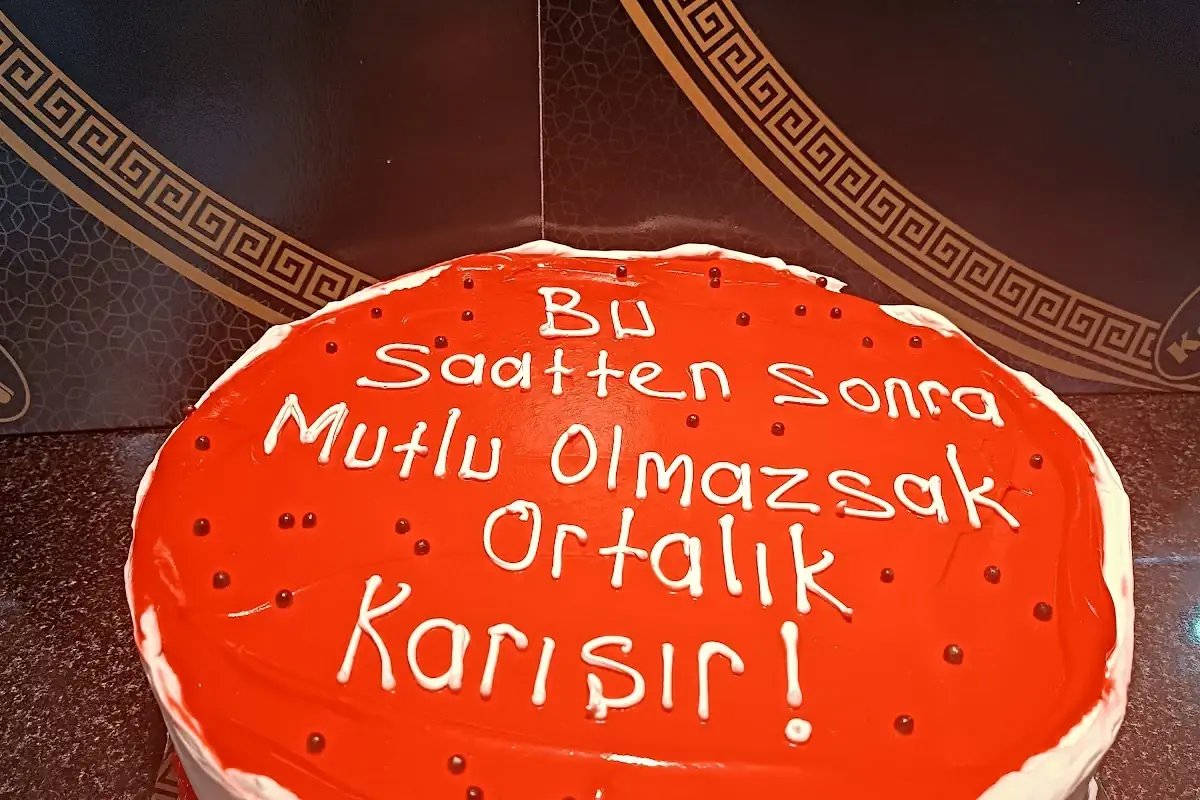 Bu
Saatten Sonra
Mutlu Olmazsak
Ortalık
Karışır!